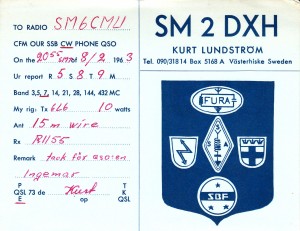 TO RADIO SM6CMU
CFM OUR SSB CW PHONE QSO
On the 2055 SMT of 8/2 1963
Ur report R 5 S 8 T 9 M
Band 3,5, 7, 14, 21, 28, 144, 432 MC
My rig: Tx 6L6 10 watts
Ant 15 m wire
Rx R1155
Remark tack för QSO:en
Ingemar
P T
QSL 73 de Kurt K
E QSL
SM 2 DXH
KURT LUNDSTRÖM
Tel. 090/318 14 Box 5168 A Västerhiske Sweden
FURA
SSA
SBF